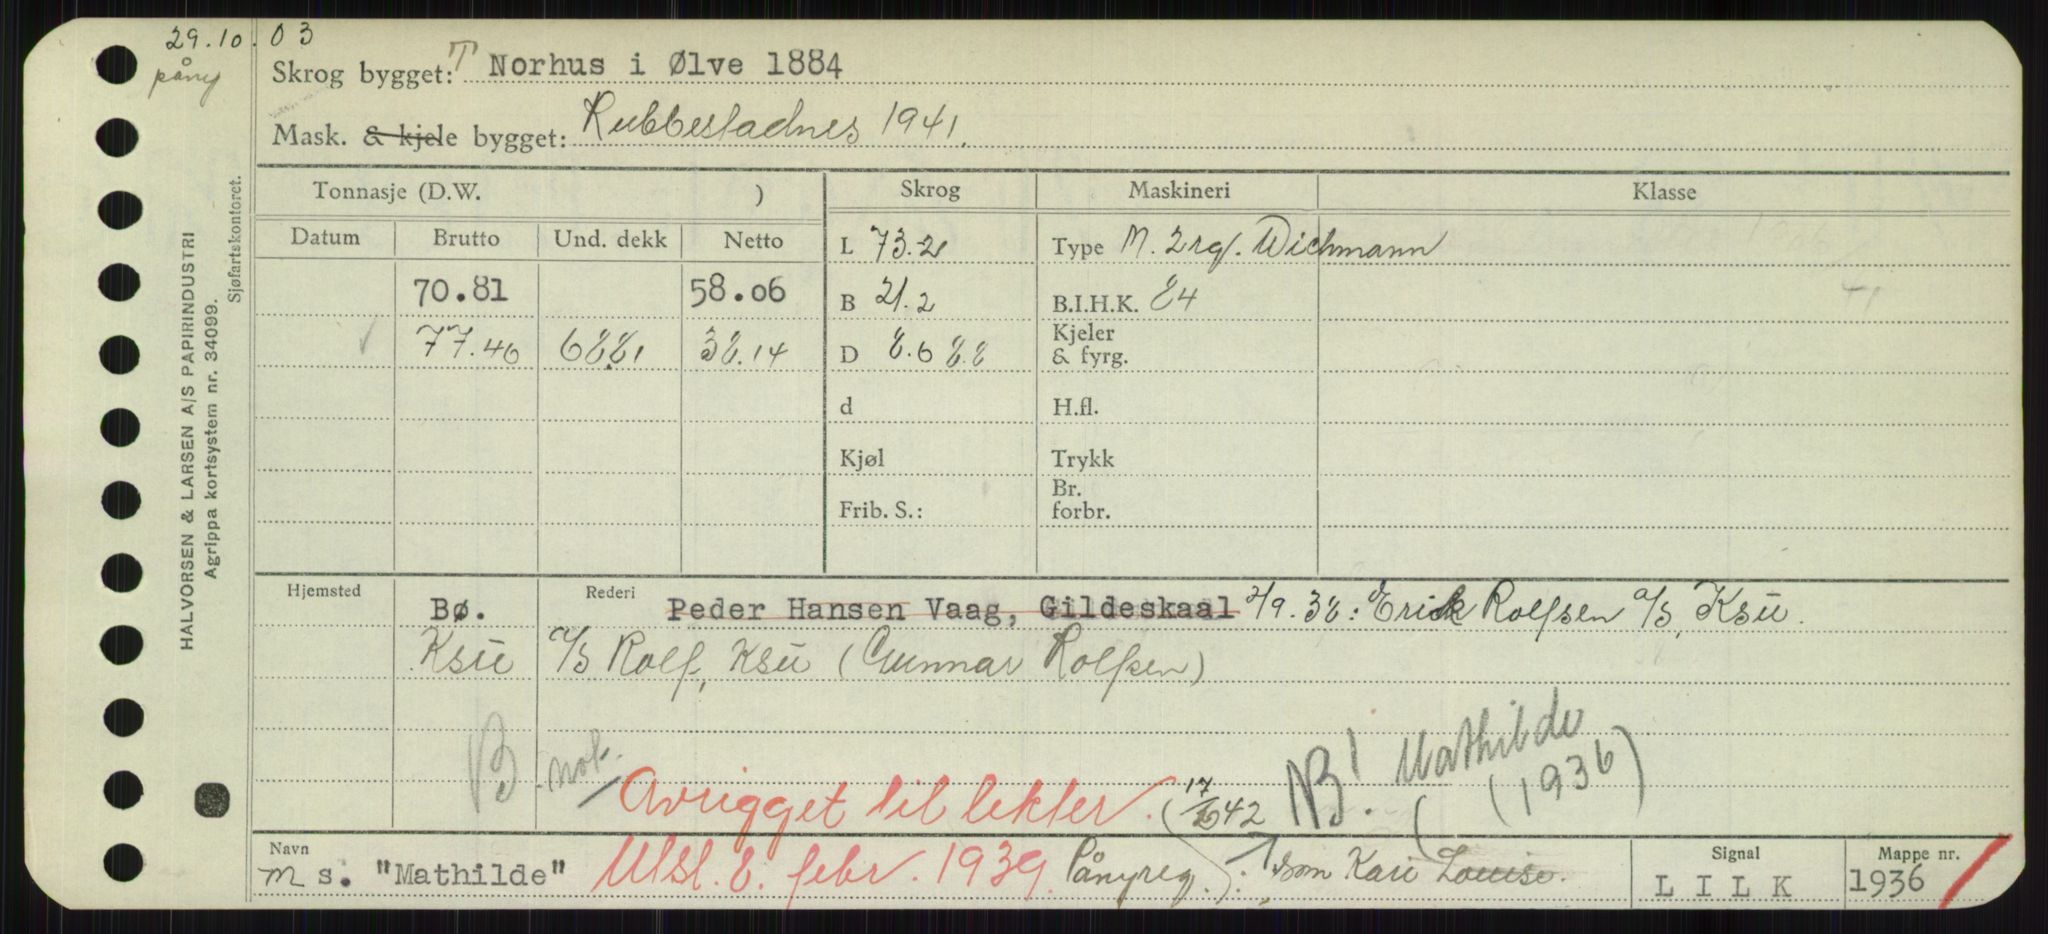 29.10.03
påny
Skrog bygget: T Norhus i Ølve 1884
Mask. & kjele bygget: Rubbestadnes 1941.
HALVORSEN & LARSEN A/S PAPIRINDUSTRI
Agrippa kortsystem nr. 34099.
Sjøfartskontoret.
Tonnasje (D.W. ) Skrog Maskineri Klasse
Datum Brutto Und. dekk Netto
L 73.2 Type M. 2 Wichmann
70.81 58.06 B 21.2 B.I.H.K. 84
77.46 68.81 38.14 D 8.6 8.8 Kjeler & fyrg.
d H.fl.
Kjøl Trykk
Frib. S.: Br. forbr.
Hjemsted Bø. Rederi Peder Hansen Vaag, Gildeskaal 2/9.38: Erick Rolfsen A/S, Ksu.
Ksu A/S Rolf, Ksu (Gunnar Rolfsen)
B not. NB! Mathilde (1936)
Avrigget til lekter. (17/6 42
Navn m s. "Mathilde" Utsl. 8. febr. 1939. Pånyreg.): som Kari Louise. Signal LILK Mappe nr. 1936